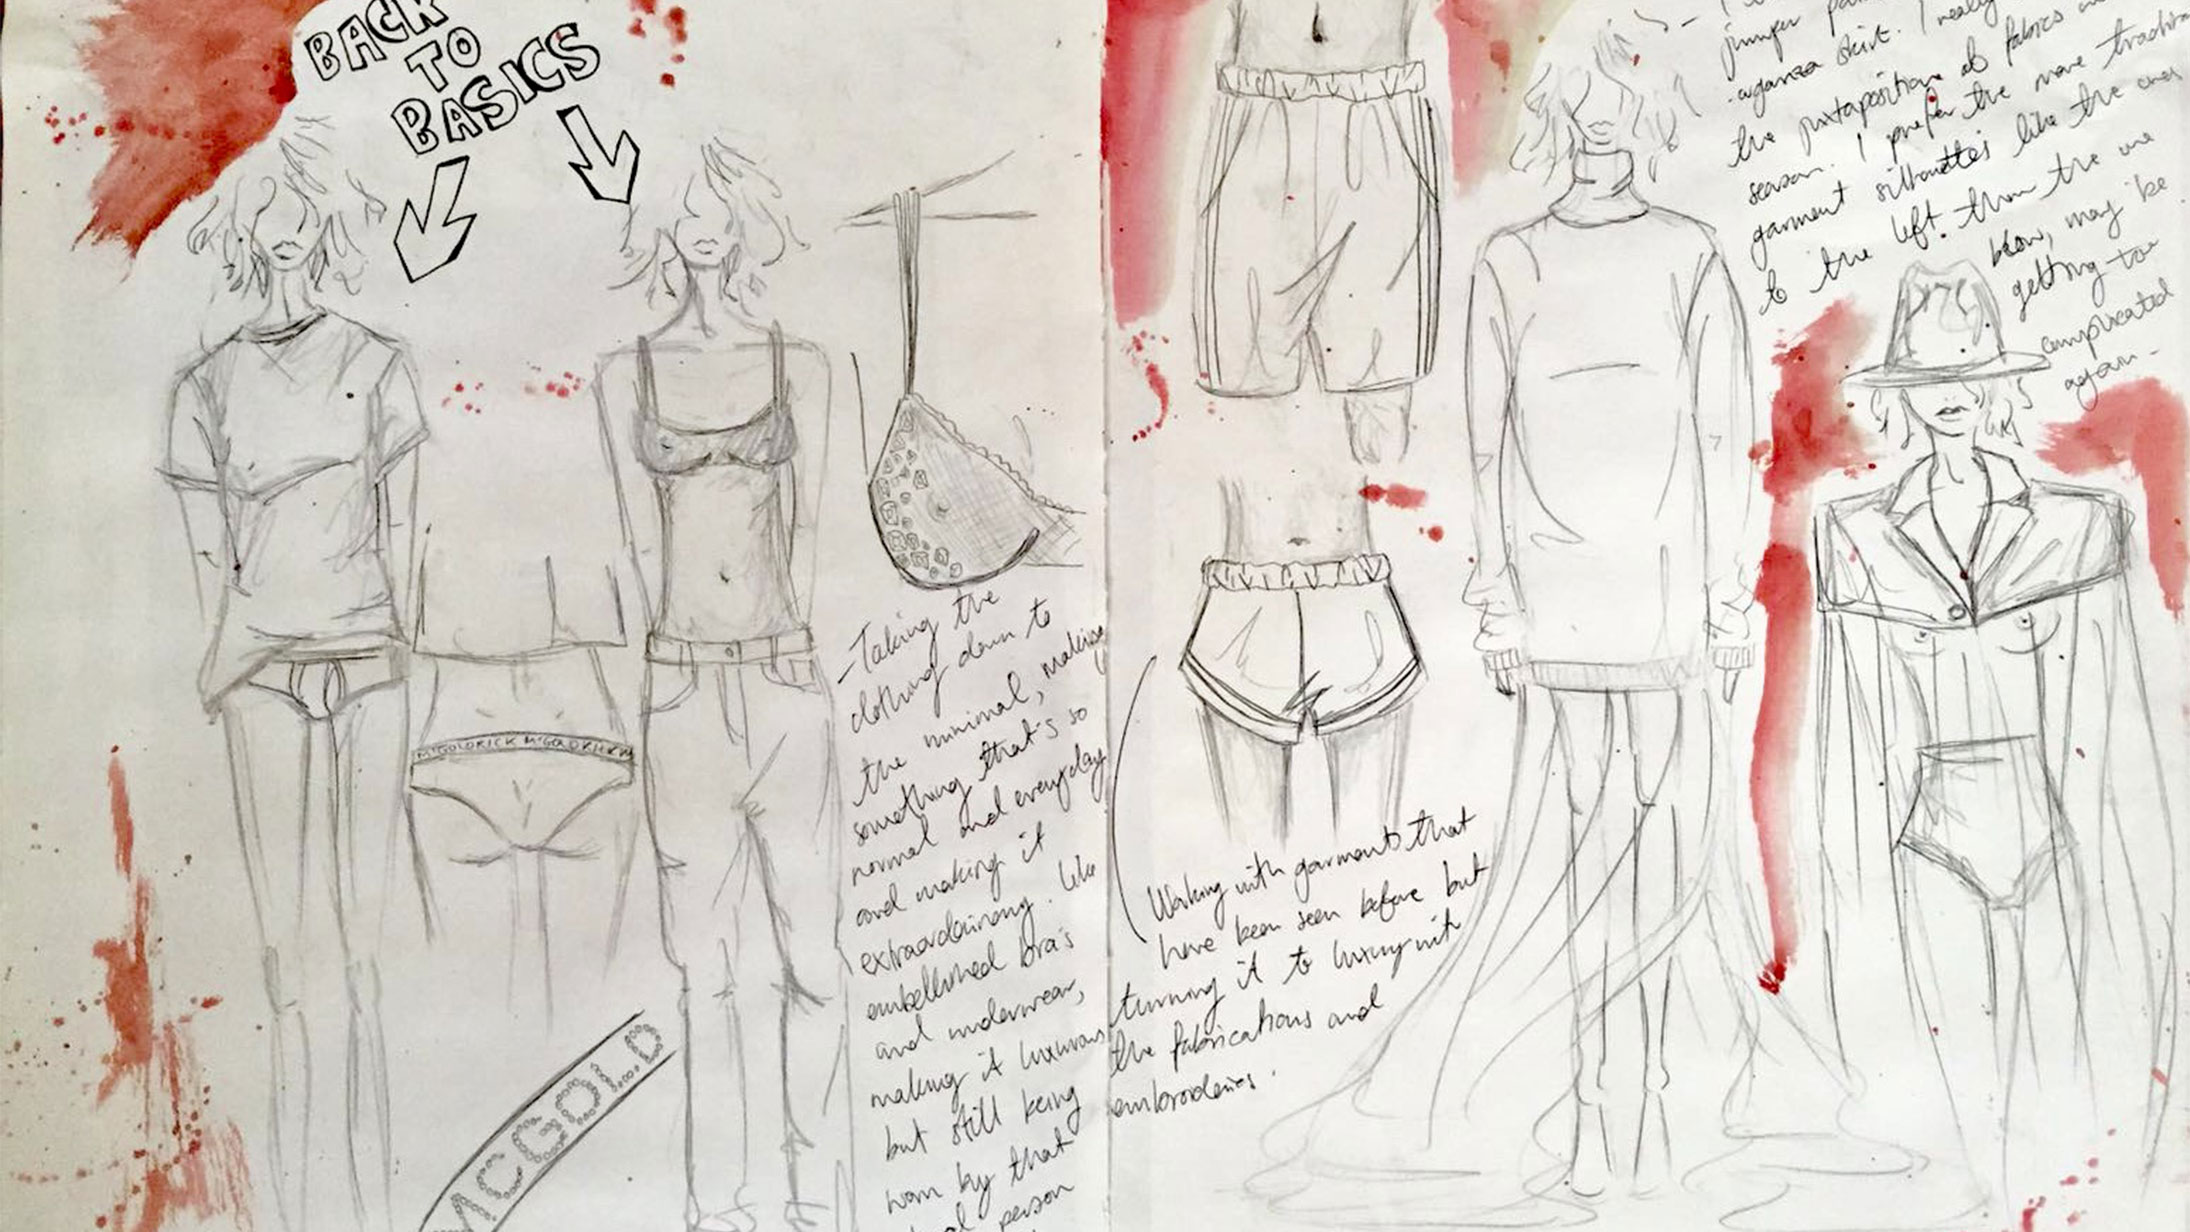 BACK
TO
BASICS
MCGOLDRICK MCGOLDRICK
MCGOLD
- Taking the
clothing down to
the minimal, making
something that's so
normal and everyday
and making it
extraordinary. like
embellished bra's
and underwear,
making it luxurious
but still being
worn by that
person
Working with garments that
have been seen before but
turning it to luxury with
the fabrications and
embroideries.
jumper
organza skirt. I really
the juxtaposition of fabrics
season. I prefer the more
garment silhouettes like the ones
to the left. than the one
below, may be
getting too
complicated
again -